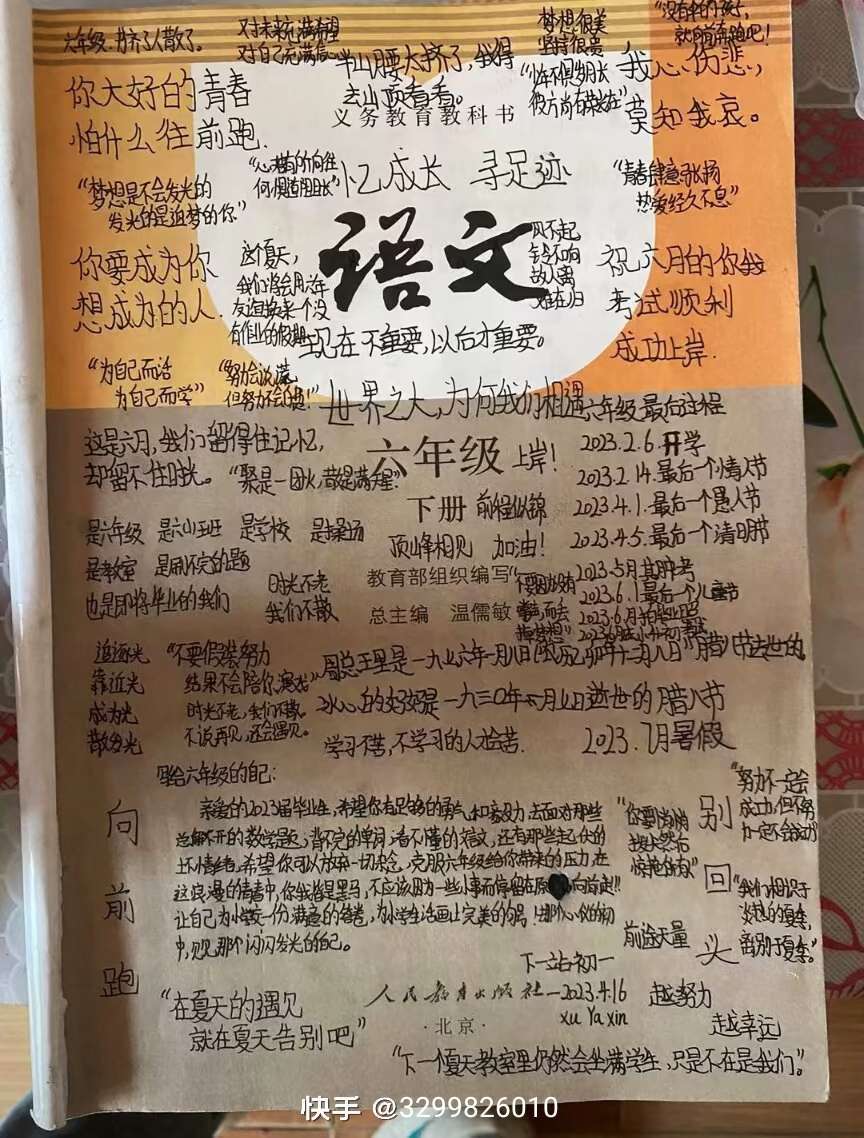 六年级、挤了人散了。
对未来充满希望
对自己充满信心
半山腰太挤了，我得
去山顶看看。
梦想很美
坚持很累
“没有伞的孩子，
就用奔跑吧！
你大好的青春
怕什么往前跑.
义务教育教科书
“少年不惧岁月长
彼方尚有荣光在”
我心伤悲，
莫知我哀。
“梦想是不会发光的
发光的是追梦的你”
何惧道阻且长”
忆成长 寻足迹
“青春肆意张扬
热爱经久不息”
语文
你要成为你
想成为的人.
这个夏天，
我们将会用六年
友谊换来一个没
有作业的假期
风不起
铃不响
故人离
难在归
祝六月的你我
考试顺利
成功上岸.
现在不重要，以后才重要。
“为自己而活
为自己而学”
“努力会说谎
但努力不会白费！”
世界之大，为何我们相遇
六年级最后过程
这是六月，我们留得住记忆，
却留不住时光。
“聚是一团火，散是满天星”
六年级
上岸！
下册
前程似锦
顶峰相见 加油！
2023.2.6.开学
2023.2.14.最后一个情人节
2023.4.1.最后一个愚人节
2023.4.5.最后一个清明节
2023.5月期中考
2023.6.1最后一个儿童节
2023.6月拍毕业照
是六年级 是六小班 是学校 是操场
是教室 是刷不完的题
也是即将毕业的我们
时光不老
我们不散
教育部组织编写
总主编 温儒敏
追逐光
靠近光
成为光
散发光
“不要假装努力
结果不会陪你演戏”
时光不老，我们不散.
不说再见，还会遇见。
周总王里是一九七六年一月八日
腊八节去世的
冰心的好妈是一九三〇年
逝世的腊八节
学习不苦，不学习的人才会苦.
2023.7月暑假
写给六年级的自己：
亲爱的2023届毕业生，希望你有足够的勇气和毅力，去面对那些
总解不开的数学题，背不完的单词，看不懂的短文，还有那些起伏的
坏情绪.希望你可以放弃一切杂念，克服六年级给你带来的压力，在
这浪漫的青春中，你我皆是黑马，不应该因为一些小事而停留在原
向前走!!
让自己为小学交一份满意的答卷，为小学生活画上完美的句号！
中，见见那个闪闪发光的自己。
向
前
跑
“你要悄悄
拔尖然后
惊艳所有”
别
回
头
“努力不一定会
成功，但不努
力一定不会成功”
“我们相识于
淡淡的夏季，
离别于夏季。”
前途无量
下一站初一
人民教育出版社
—2023.4.16
xu Ya xin
·北京·
越努力
越幸运
“在夏天的遇见
就在夏天告别吧”
“下一个夏天教室里仍然会坐满学生，只是不在是我们”。
快手 @3299826010